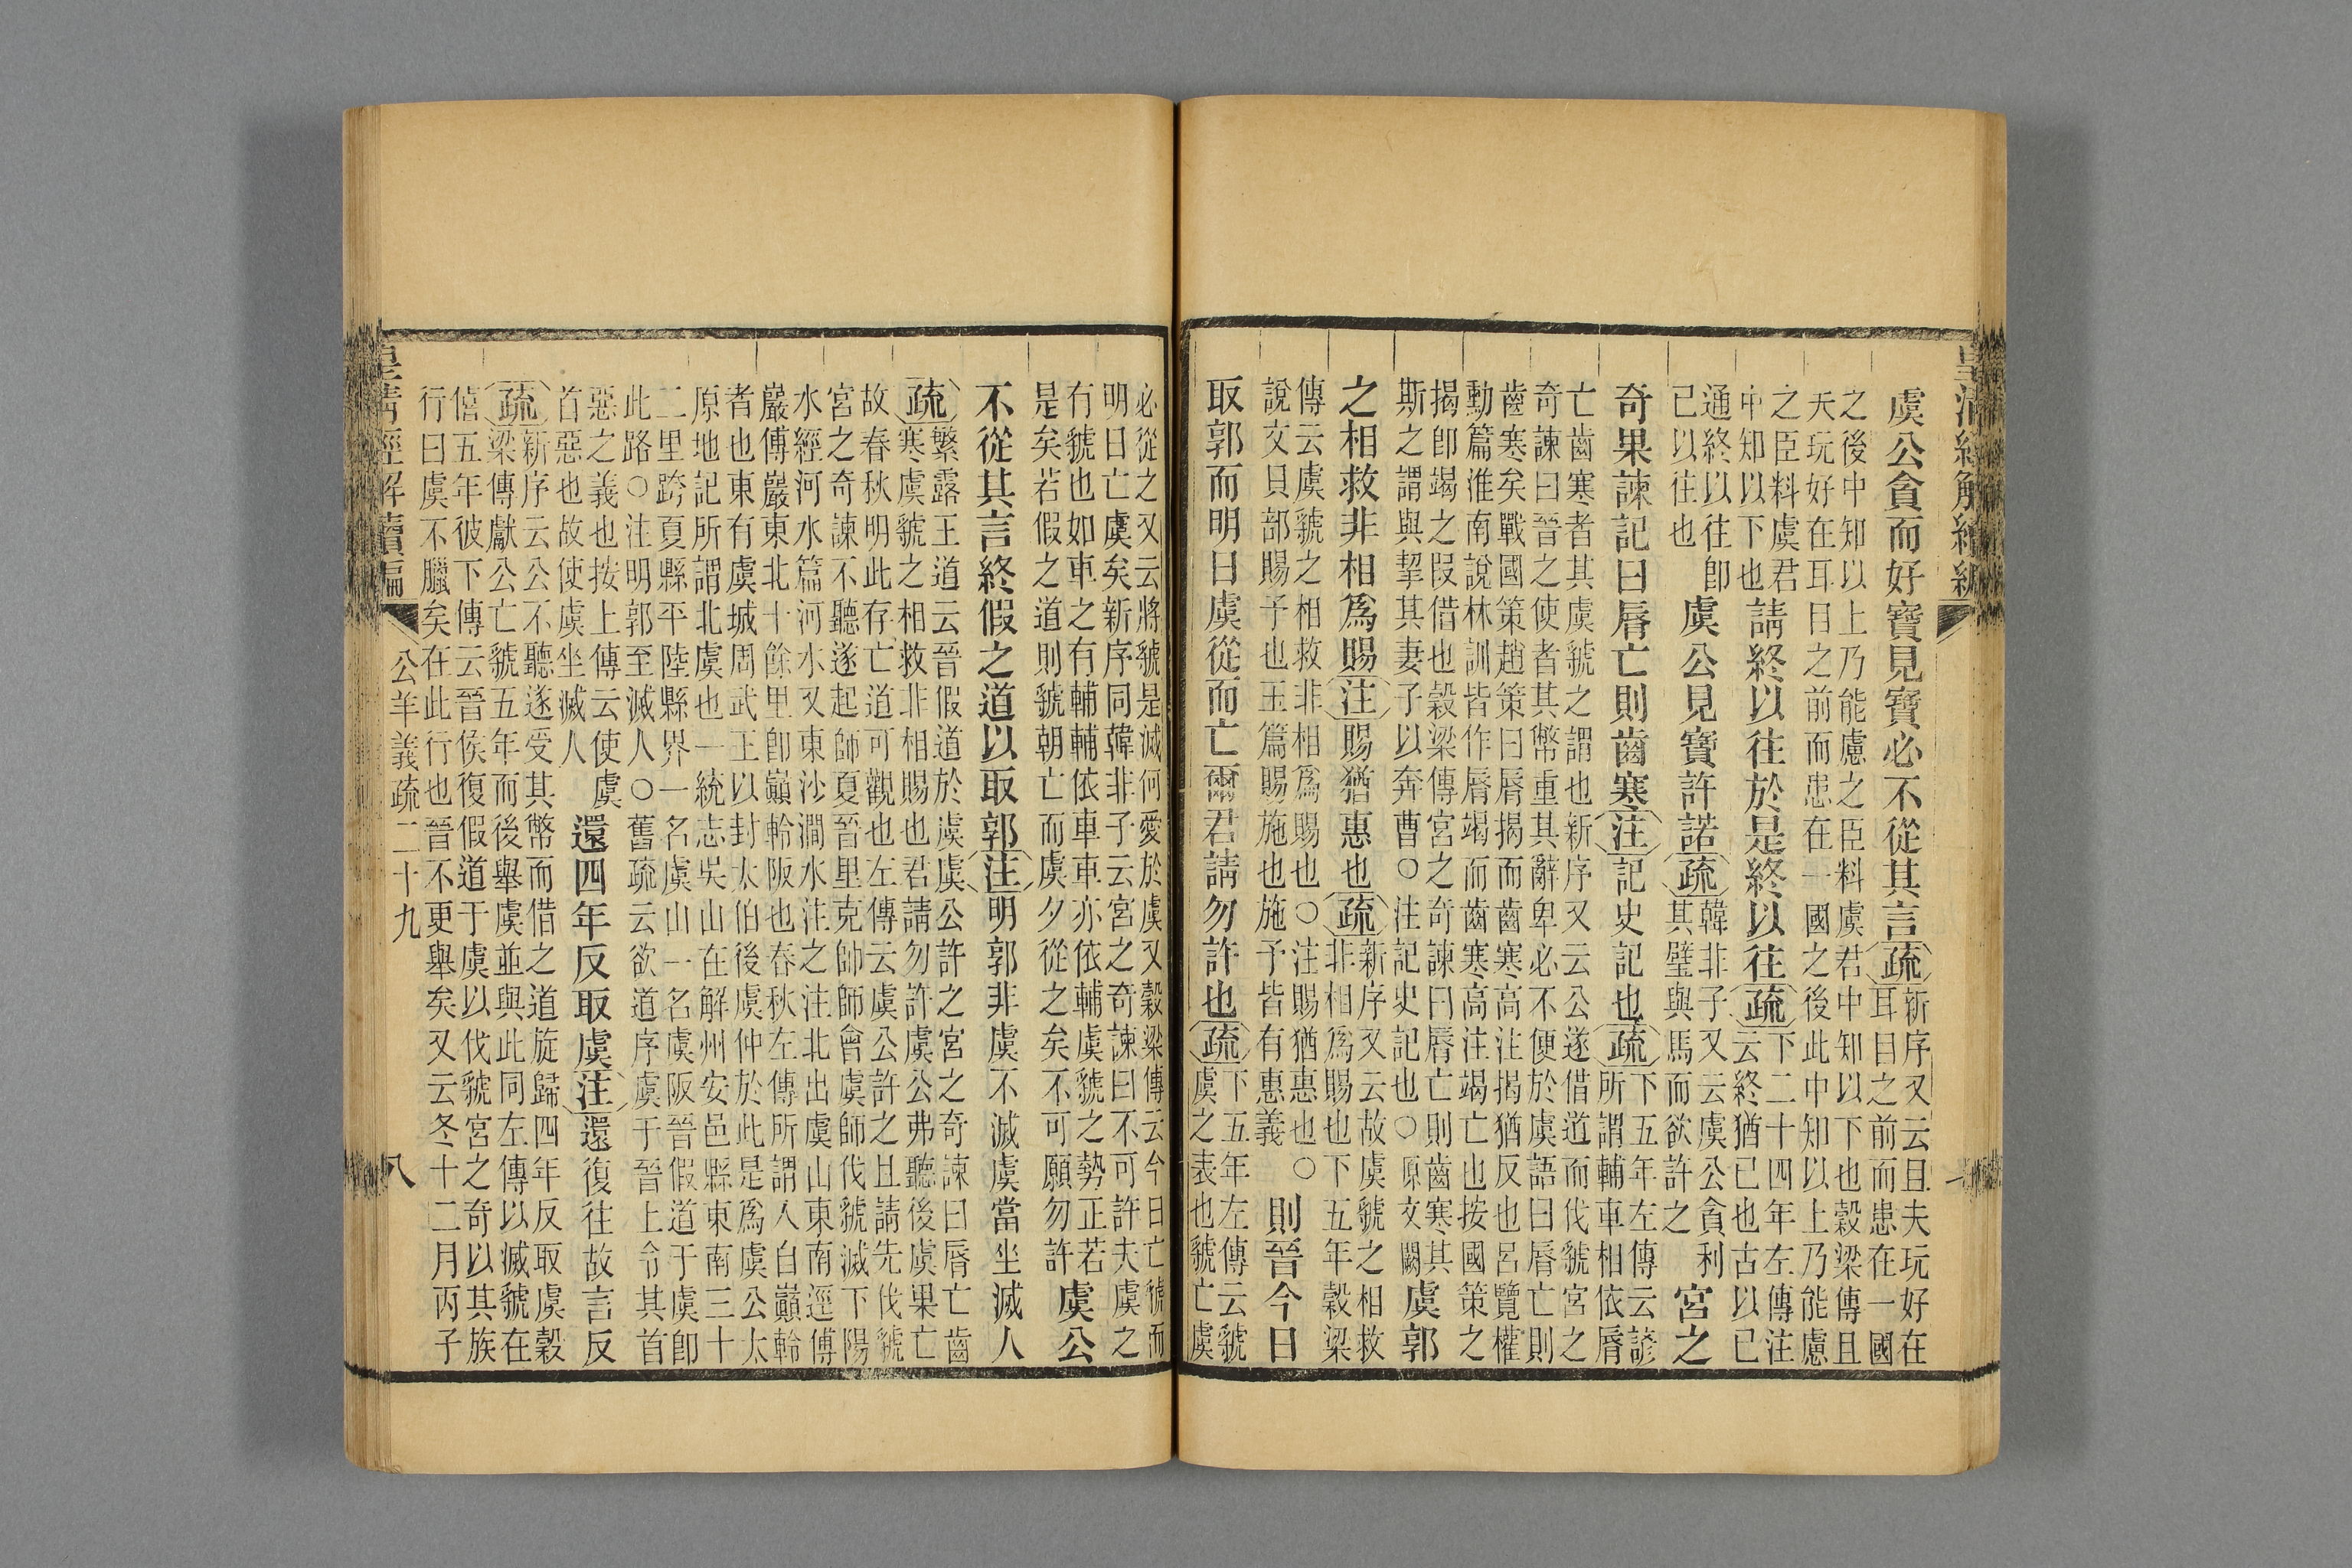 皇清經解續編
虞公貪而好寶見寶必不從其言疏新序又云且夫玩好在
耳目之前而患在一國
之後中知以上乃能慮之臣料虞君中知以下也穀梁傳且
夫玩好在耳目之前而患在一國之後此中知以上乃能慮
之臣料虞君
中知以下也請終以往於是終以往疏下二十四年左傳注
云終猶已也古以已
通終以往卽
已以往也虞公見寶許諾疏韓非子又云虞公貪利
其璧與馬而欲許之宮之
奇果諫記曰脣亡則齒寒注記史記也疏下五年左傳云諺
所謂輔車相依脣
亡齒寒者其虞虢之謂也新序又云公遂借道而伐虢宮之
奇諫曰晉之使者其幣重其辭卑必不便於虞語曰脣亡則
齒寒矣戰國策趙策曰脣揭而齒寒高注揭猶反也呂覽權
勳篇淮南說林訓皆作脣竭而齒寒高注竭亡也按國策之
揭卽竭之叚借也穀梁傳宮之奇諫曰脣亡則齒寒其
斯之謂與挈其妻子以奔曹○注記史記也○原文闕虞郭
之相救非相爲賜注賜猶惠也疏新序又云故虞虢之相救
非相爲賜也下五年穀梁
傳云虞虢之相救非相爲賜也○注賜猶惠也○
說文貝部賜予也玉篇賜施也施予皆有惠義則晉今日
取郭而明日虞從而亡爾君請勿許也疏下五年左傳云虢
虞之表也虢亡虞
必從之又云將虢是滅何愛於虞又穀梁傳云今日亡虢而
明日亡虞矣新序同韓非子云宮之奇諫曰不可許夫虞之
有虢也如車之有輔輔依車車亦依輔虞虢之勢正若
是矣若假之道則虢朝亡而虞夕從之矣不可願勿許虞公
不從其言終假之道以取郭注明郭非虞不滅虞當坐滅人
疏繁露王道云晉假道於虞虞公許之宮之奇諫曰脣亡齒
寒虞虢之相救非相賜也君請勿許虞公弗聽後虞果亡
故春秋明此存亡道可觀也左傳云虞公許之且請先伐虢
宮之奇諫不聽遂起師夏晉里克帥師會虞師伐虢滅下陽
水經河水篇河水又東沙澗水注之注北出虞山東南逕傅
巖傅巖東北十餘里卽巓軨阪也春秋左傳所謂入自巓軨
者也東有虞城周武王以封太伯後虞仲於此是爲虞公太
原地記所謂北虞也一統志吳山在解州安邑縣東南三十
二里跨夏縣平陸縣界一名虞山一名虞阪晉假道于虞卽
此路○注明郭至滅人○舊疏云欲道序虞于晉上令其首
惡之義也按上傳云使虞
首惡也故使虞坐滅人還四年反取虞注還復往故言反
疏新序云公不聽遂受其幣而借之道旋歸四年反取虞穀
梁傳獻公亡虢五年而後舉虞並與此同左傳以滅虢在
僖五年彼下傳云晉侯復假道于虞以伐虢宮之奇以其族
行曰虞不臘矣在此行也晉不更舉矣又云冬十二月丙子
皇清經解續編
公羊義疏二十九
八